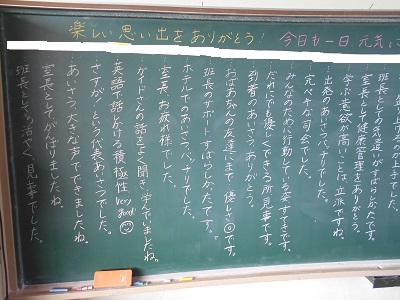 楽しい思い出をありがとう！ 今日も一日元気に
盛り上げ方が上手でした。
班長としての気遣いがすばらしかったです。
室長として健康管理をありがとう。
学ぶ意欲が高いことは立派ですね。
出発のあいさつ、バッチリでした。
完ペキな司会でした。
みんなのために行動している姿ステキです。
だれにでも優しくできる所、見事です。
到着のあいさつ、ありがとう。
おばあちゃんの友達にまで、優しさ◎です。
班長のサポートすばらしかったです。
ホテルでのあいさつ、バッチリでした。
室長、お疲れ様でした。
ガイドさんの話をよく聞き、学んでいましたね。
英語で話しかける積極性 Very good!
さすが！という代表あいさつでした。
あいさつ、大きな声でできましたね。
室長としてがんばりましたね。
班長としての活やく、見事でした。